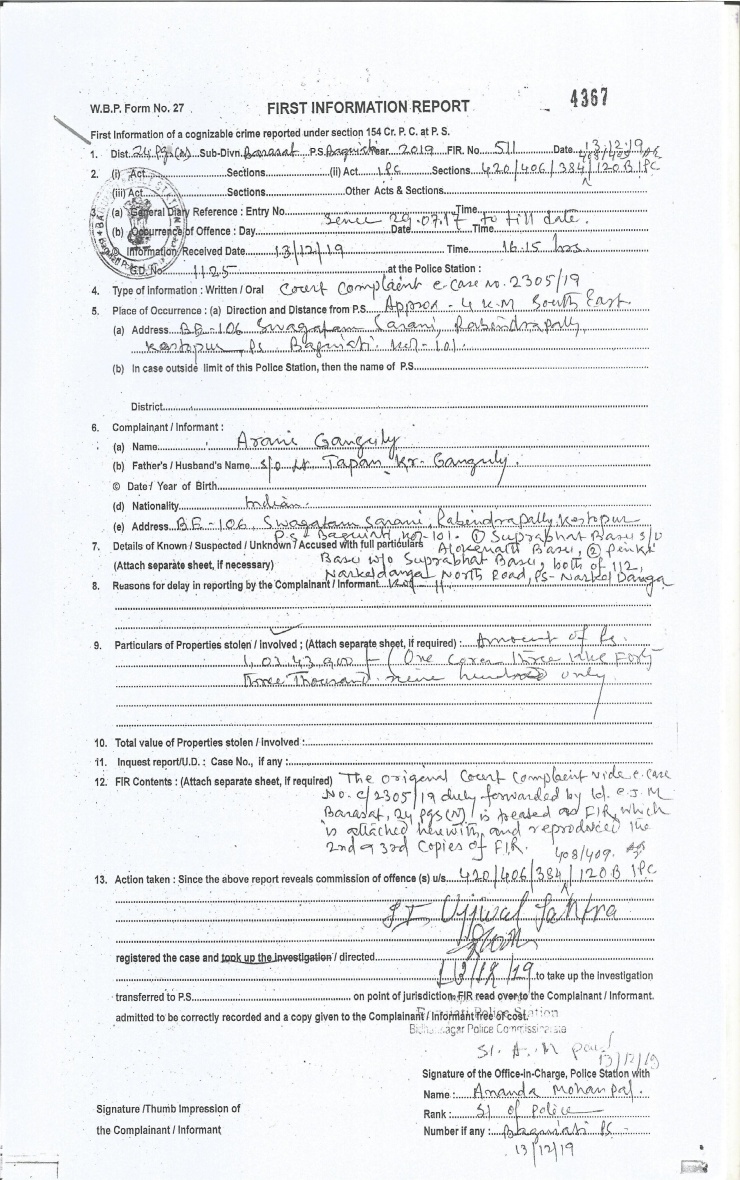 4367
W.B.P. Form No. 27 FIRST INFORMATION REPORT
First Information of a cognizable crime reported under section 154 Cr. P. C. at P. S.
1. Dist. 24 Pgs(N) Sub-Divn. Barasat P.S. Baguiati Year 2019 FIR. No. 511 Date 13.12.19
408/409
2. (i) Act Sections (ii) Act IPC Sections 420/406/384/120B IPC
(iii) Act Sections Other Acts & Sections
3. (a) General Diary Reference : Entry No. Time
Sence 29.07.17 to till date.
(b) Occurrence of Offence : Day Date Time
© Information Received Date 13/12/19 Time 16.15 hrs
G.D. No. 1125 at the Police Station :
4. Type of information : Written / Oral Court Complaint c-case no. 2305/19
5. Place of Occurrence : (a) Direction and Distance from P.S. Approx - 4 K.M South East
(a) Address BE-106 Swagatam Sarani, Rabindrapally
Kestopur, PS Baguiati. Kol-101.
(b) In case outside limit of this Police Station, then the name of P.S.
District
6. Complainant / Informant :
(a) Name Arani Ganguly
(b) Father's / Husband's Name S/o Lt Tapan Kr. Ganguly.
© Date / Year of Birth
(d) Nationality Indian.
(e) Address BE-106, Swagatam Sarani, Rabindrapally, Kestopur
P.S - Baguiati, Kol-101. ① Suprabhat Basu S/o
7. Details of Known / Suspected / Unknown / Accused with full particulars Alokenath Basu, ②
(Attach separate sheet, if necessary) Basu W/o Suprabhat Basu, both of 112,
Narkeldanga North Road, PS- Narkel Danga
8. Reasons for delay in reporting by the Complainant / Informant Kol - 11.
9. Particulars of Properties stolen / Involved ; (Attach separate sheet, if required) : Amount of Rs.
1,03,43,900/- (One crore three lakh Forty
three Thousand nine hundred only
10. Total value of Properties stolen / involved :
11. Inquest report/U.D. : Case No., if any :
12. FIR Contents : (Attach separate sheet, if required) The original Court Complaint vide c-case
No. C/2305/19 duly forwarded by Ld. C.J.M
Barasat, 24 Pgs(N) is treated as FIR, which
is attached herewith and reproduced the
2nd & 3rd Copies of FIR.
408/409.
13. Action taken : Since the above report reveals commission of offence (s) u/s. 420/406/384/120B IPC
S.I. Ujjwal
registered the case and took up the investigation / directed
13/12/19 to take up the Investigation
transferred to P.S. on point of jurisdiction. FIR read over to the Complainant / Informant.
admitted to be correctly recorded and a copy given to the Complainant / Informant free of cost.
Baguiati Police Station
Bidhannagar Police Commissionerate
SI. A. M Paul
13/12/19
Signature of the Office-In-Charge, Police Station with
Name : Ananda Mohan Pal.
Signature /Thumb Impression of
Rank : SI of Police
the Complainant / Informant
Number if any : Baguiati PS
13/12/19